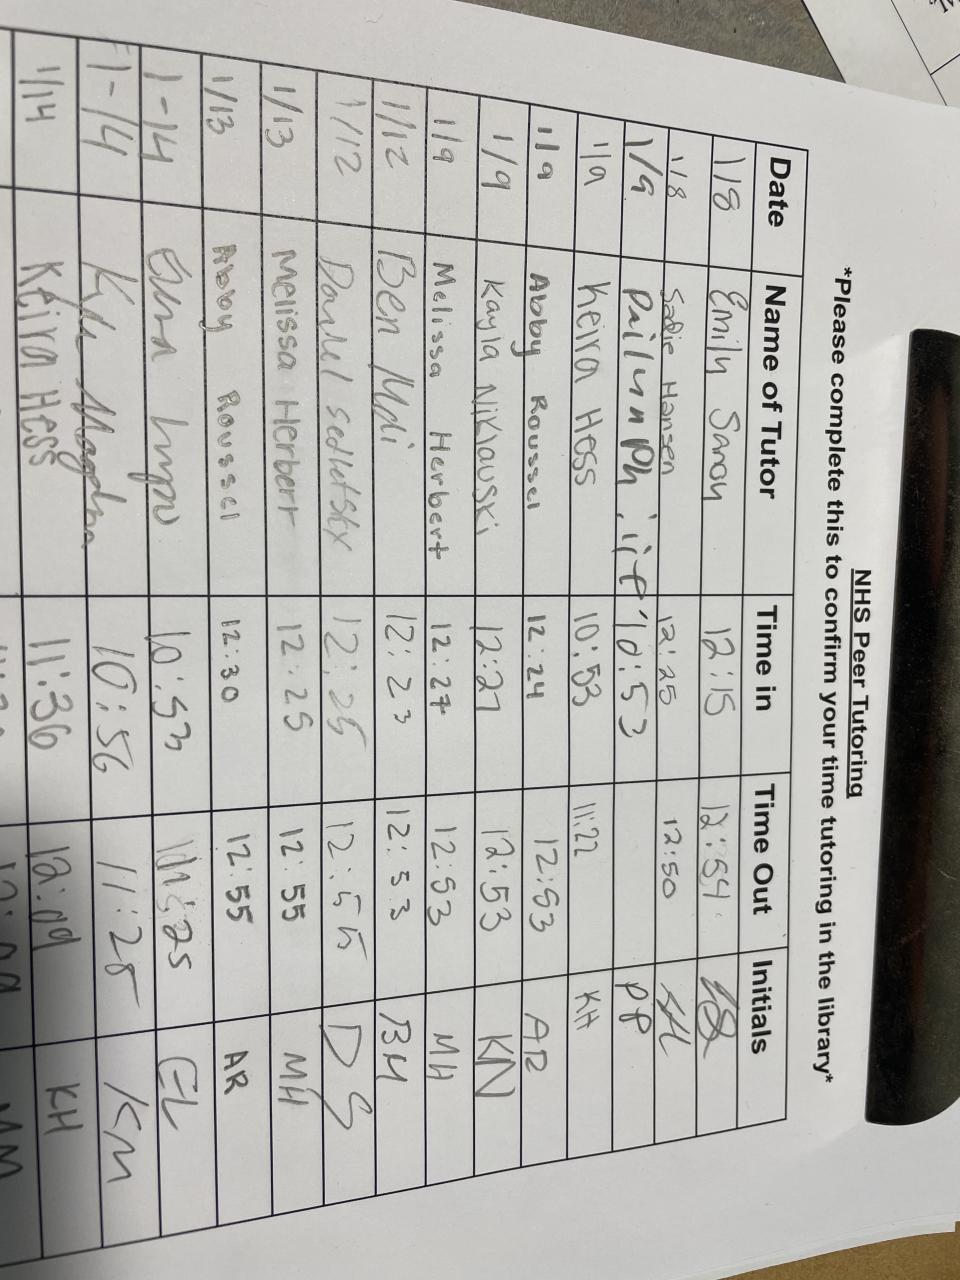 NHS Peer Tutoring
*Please complete this to confirm your time tutoring in the library*
Date Name of Tutor Time in Time Out Initials
1/8 Emily 12:15 12:54
1/8 Sadie Hansen 12:25 12:50 SH
1/9 10:53 PP
1/9 Keira Hess 10:53 11:22 KH
1/9 Abby Roussel 12:24 12:53 AR
1/9 Kayla Niklauski 12:27 12:53 KN
1/9 Melissa Herbert 12:27 12:53 MH
1/12 Ben 12:23 12:53 BM
1/12 Daniel sedlutsky 12:25 12:55 DS
1/13 Melissa Herbert 12:25 12:55 MH
1/13 Abby Roussel 12:30 12:55 AR
1-14 10:53 EL
1-14 Kyle 10:56 11:25 KM
1/14 Keira Hess 11:36 12:09 KH